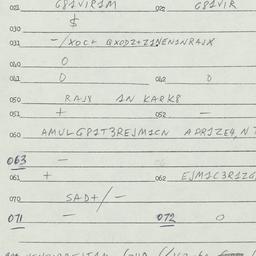 021 G81VIR1M 022 G81VIR
030 $
031 -/XOC+ BXODZ+Z1NEN1NRAJX
040 O
041 O 042 O
050 RAJX 1N KARK8
051 + 052 -
060 AMULG81T3REJM1CN APR1ZE4,NT
063 -
061 + 062 EJM1C3R1Z6
070 SAD+/-
071 - 072 O